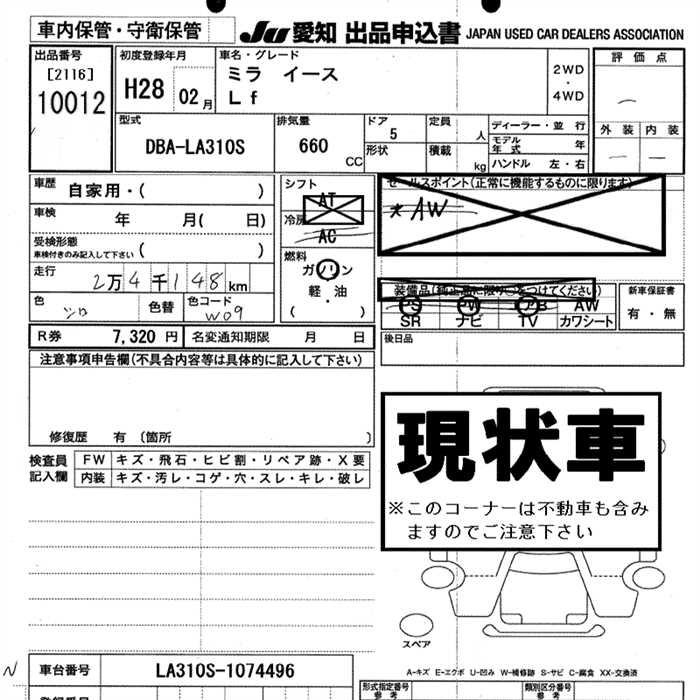 車内保管・守衛保管
JU 愛知 出品申込書 JAPAN USED CAR DEALERS ASSOCIATION
出品番号
[2116]
10012
初度登録年月
H28 02月
車名・グレード
ミラ イース
Lf
2WD
・
4WD
評価点
外装 内装
型式
DBA-LA310S
排気量
660 CC
ドア
5
形状
定員
人
積載
kg
ディーラー・並行
モデル年式 年
ハンドル 左・右
車歴 自家用・( )
車検 年 月( 日)
受検形態
車検付きのみ記入して下さい ( )
走行 2万4千148km
色 シロ 色替 色コード W09
シフト
AT
冷房
AC
燃料
ガソリン
軽・油
( )
セールスポイント(正常に機能するものに限ります)
*AW
装備品(純正品に限り○をつけてください)
PS PW AB AW
SR ナビ TV カワシート
新車保証書
有・無
後日品
R券 7,320円 名変通知期限 月 日
注意事項申告欄(不具合内容等は具体的に記入して下さい)
修復歴 有 〔箇所 〕
検査員記入欄
FW キズ・飛石・ヒビ割・リペア跡・X要
内装 キズ・汚レ・コゲ・穴・スレ・キレ・破レ
現状車
※このコーナーは不動車も含み
ますのでご注意下さい
スペア
A-キズ E-エクボ U-凹み W-補修跡 S-サビ C-腐食 XX-交換済
N
車台番号 LA310S-1074496
形式指定番号
参考
類別区分番号
参考